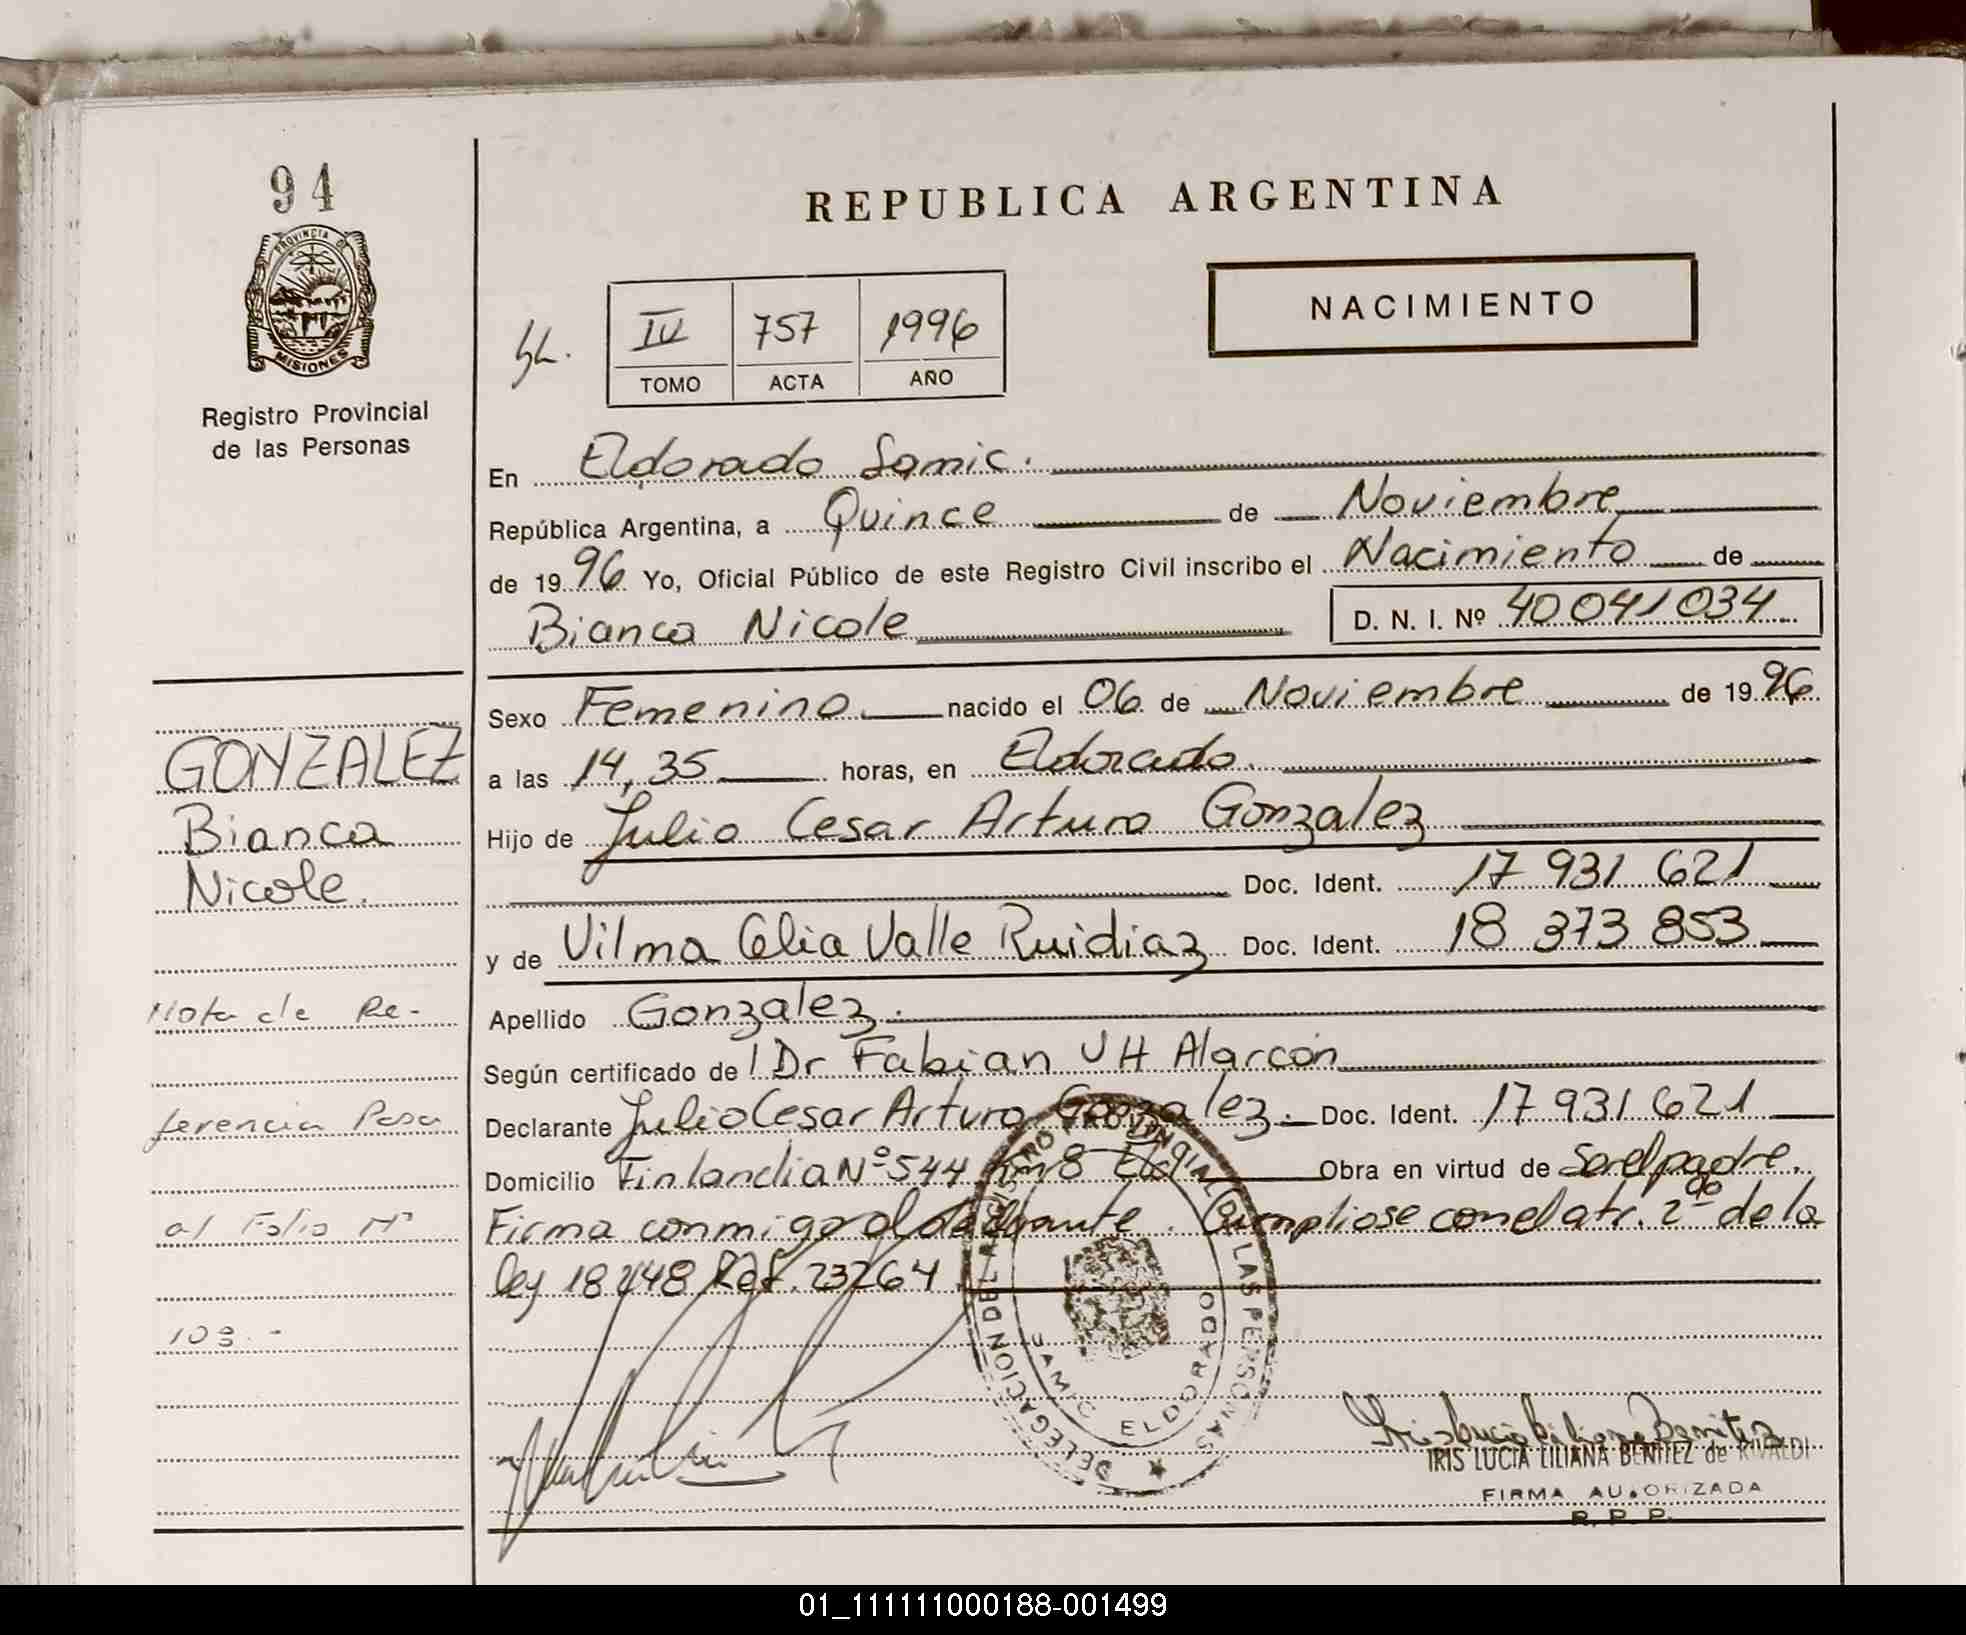 94
PROVINCIA DE
MISIONES
Registro Provincial
de las Personas
REPUBLICA ARGENTINA
NACIMIENTO
IV 757 1996
TOMO ACTA AÑO
En Eldorado Samic.
República Argentina, a Quince de Noviembre
de 1996 Yo, Oficial Público de este Registro Civil inscribo el Nacimiento de
Bianca Nicole D. N. I. Nº 40041034
Sexo Femenino nacido el 06 de Noviembre de 1996
a las 14,35 horas, en Eldorado.
Hijo de Julio Cesar Arturo Gonzalez
Doc. Ident. 17 931 621
y de Vilma Celia Valle Ruidiaz Doc. Ident. 18 373 853
Apellido Gonzalez.
Según certificado de l Dr Fabian VH Alarcón
Declarante Julio Cesar Arturo Gonzalez. Doc. Ident. 17 931 621
Domicilio Finlandia Nº 544 Km 8 Eld Obra en virtud de Ser el padre.
Firma conmigo el declarante. Cumpliose con el atr. 2do de la
ley 18248 Ref. 23264
GONZALEZ
Bianca
Nicole.
Nota de Re-
ferencia Pasa
al Folio Nº
103.-
DELEGACION DEL REGISTRO PROVINCIAL DE LAS PERSONAS
SAMIC ELDORADO
Iris Lucia Liliana Benitez
IRIS LUCIA LILIANA BENITEZ de RIVALDI
FIRMA AUTORIZADA
R. P. P.
01_111111000188-001499